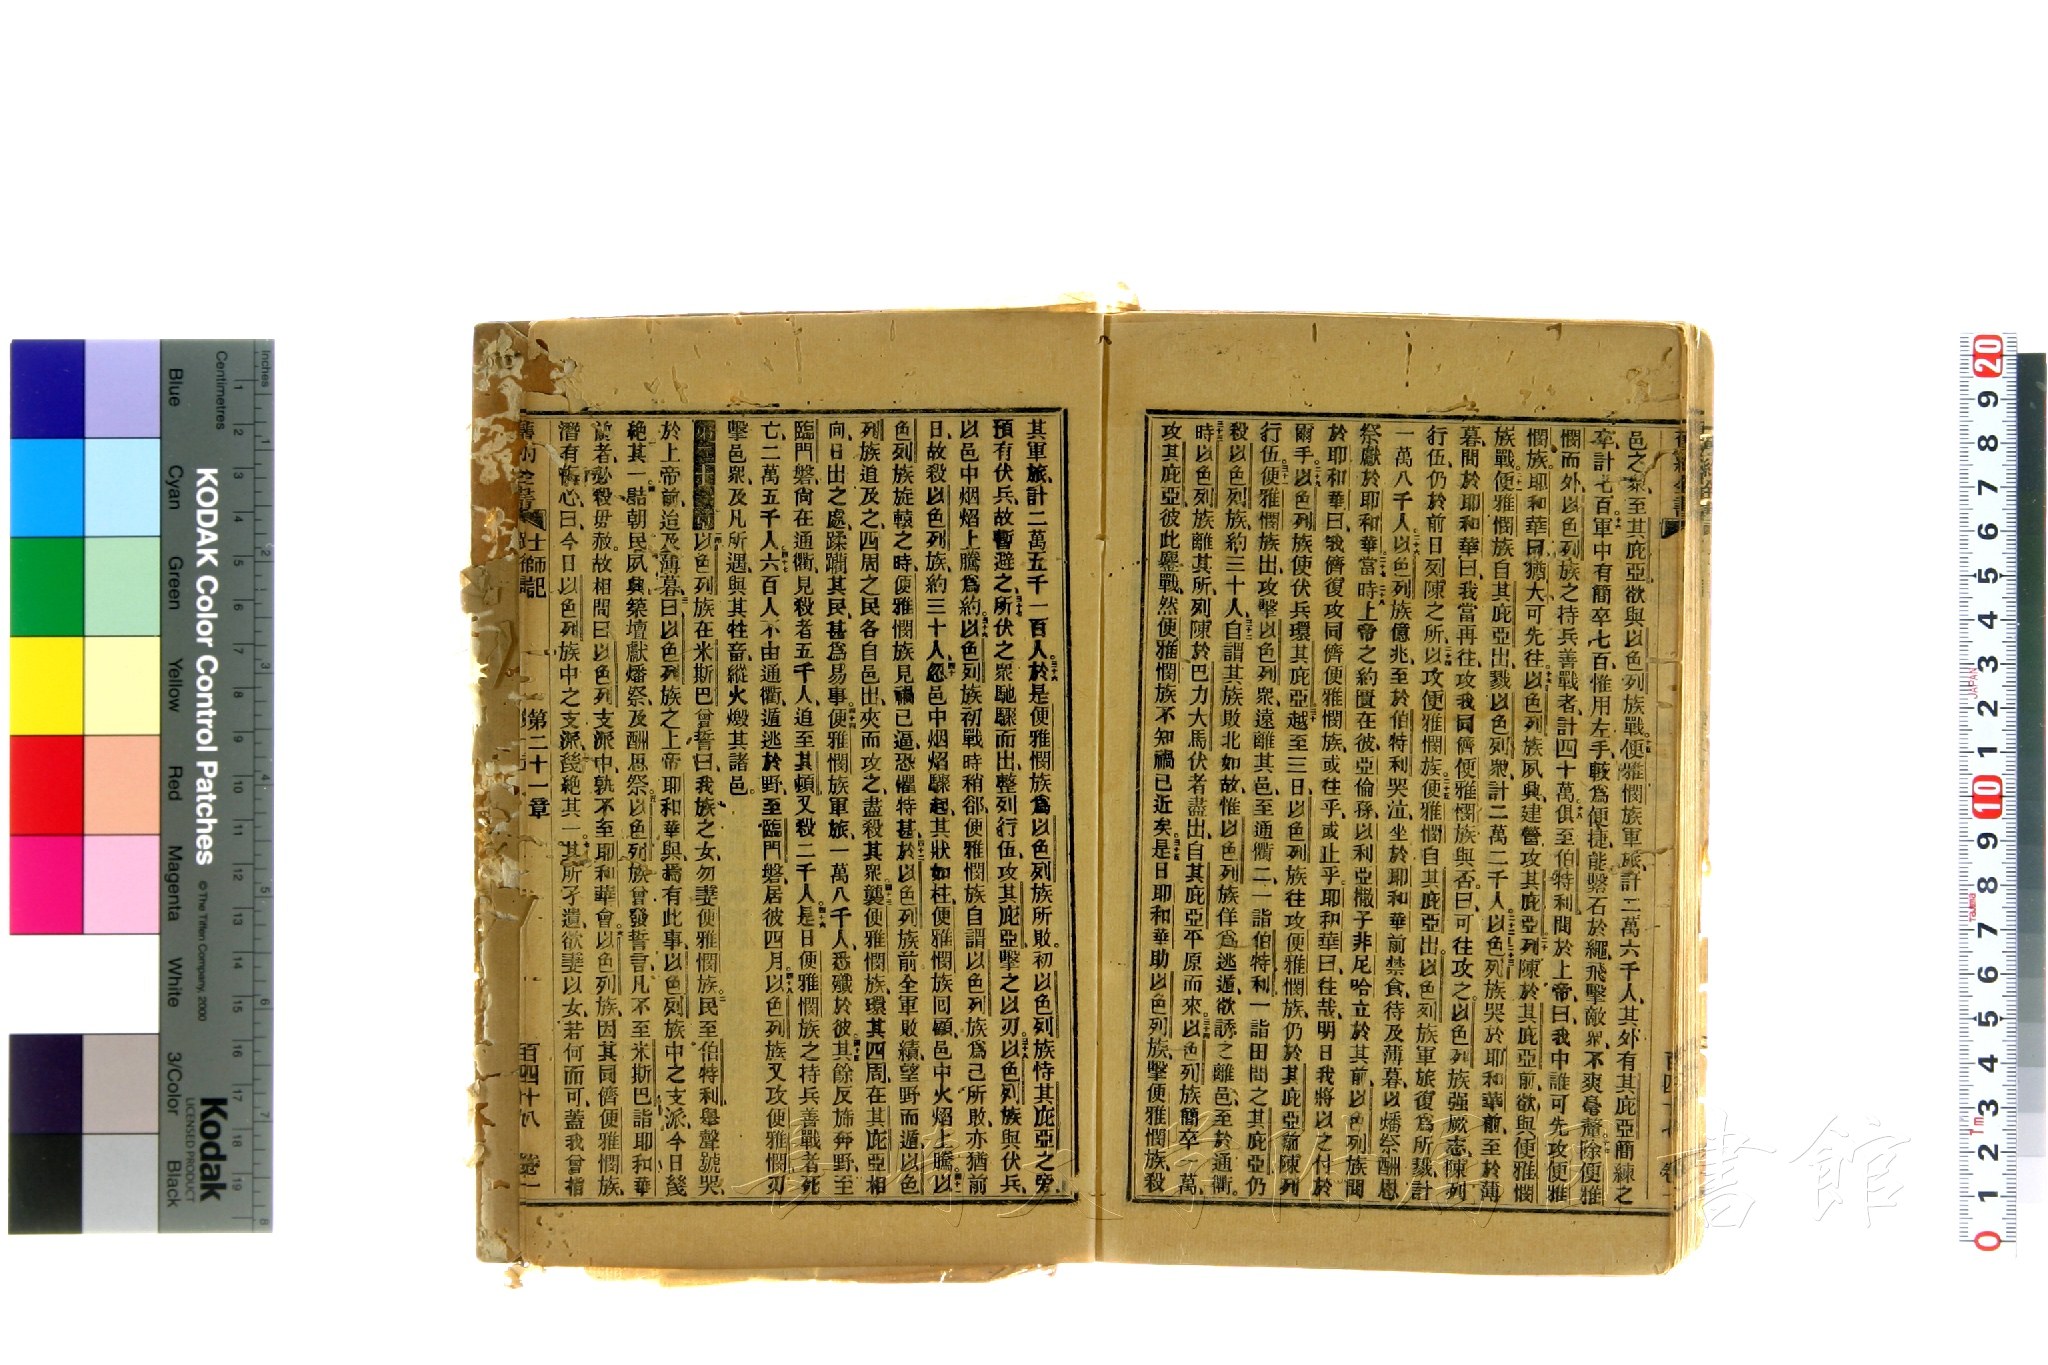 邑之衆至其庇亞欲與以色列族戰便雅憫族軍旅計二萬六千人其外有其庇亞簡練之
卒計七百軍中有簡卒七百惟用左手較爲便捷能繫石於繩飛擊敵衆不爽毫釐除便雅
憫而外以色列族之持兵善戰者計四十萬俱至伯特利問於上帝曰我中誰可先攻便雅
憫族耶和華曰猶大可先往以色列族夙興建營攻其庇亞列陳於其庇亞前欲與便雅憫
族戰便雅憫族自其庇亞出戮以色列衆計二萬二千人以色列族哭於耶和華前至於薄
暮問於耶和華曰我當再往攻我同儕便雅憫族與否曰可往攻之以色列族强厥志陳列
行伍仍於前日列陳之所以攻便雅憫族便雅憫自其庇亞出以色列族軍旅復爲所戮計
一萬八千人以色列族億兆至於伯特利哭泣坐於耶和華前禁食待及薄暮以燔祭酬恩
祭獻於耶和華當時上帝之約匱在彼亞倫孫以利亞撒子非尼哈立於其前以色列族問
於耶和華曰我儕復攻同儕便雅憫族或往乎或止乎耶和華曰往哉明日我將以之付於
爾手以色列族使伏兵環其庇亞越至三日以色列族往攻便雅憫族仍於其庇亞前陳列
行伍便雅憫族出攻擊以色列衆遠離其邑至通衢二一詣伯特利一詣田間之其庇亞仍
殺以色列族約三十人自謂其族敗北如故惟以色列族佯爲逃遁欲誘之離邑至於通衢
時以色列族離其所列陳於巴力大馬伏者盡出自其庇亞平原而來以色列族簡卒一萬
攻其庇亞彼此鏖戰然便雅憫族不知禍已近矣是日耶和華助以色列族擊便雅憫族殺
其軍旅計二萬五千一百人於是便雅憫族爲以色列族所敗初以色列族恃其庇亞之旁
預有伏兵故暫避之所伏之衆馳驟而出整列行伍攻其庇亞擊之以刃以色列族與伏兵
以邑中烟焰上騰爲約以色列族初戰時稍郤便雅憫族自謂以色列族爲己所敗亦猶前
日故殺以色列族約三十人忽邑中烟焰驟起其狀如柱便雅憫族囘顧邑中火焰上騰以
色列族旋轅之時便雅憫族見禍已逼恐懼特甚於以色列族前全軍敗績望野而遁以色
列族追及之四周之民各自邑出夾而攻之盡殺其衆襲便雅憫族環其四周在其庇亞相
向日出之處蹂躪其民甚爲易事便雅憫族軍旅一萬八千人悉殲於彼其餘反旆奔野至
臨門磐尙在通衢見殺者五千人追至其頓又殺二千人是日便雅憫族之持兵善戰者死
亡二萬五千人六百人不由通衢遁逃於野至臨門磐居彼四月以色列族又攻便雅憫刃
擊邑衆及凡所遇與其牲畜縱火燬其諸邑
以色列族在米斯巴曾誓曰我族之女勿妻便雅憫族民至伯特利舉聲號哭
於上帝前迨及薄暮曰以色列族之上帝耶和華與焉有此事以色列族中之支派今日幾
絶其一詰朝民夙興築壇獻燔祭及酬恩祭以色列族曾發誓言凡不至米斯巴詣耶和華
前者必殺毋赦故相問曰以色列支派中孰不至耶和華會以色列族因其同儕便雅憫族
潛有悔心曰今日以色列族中之支派幾絶其一其所孑遺欲妻以女若何而可蓋我曾指
士師記 第二十一章 百四十八 卷一